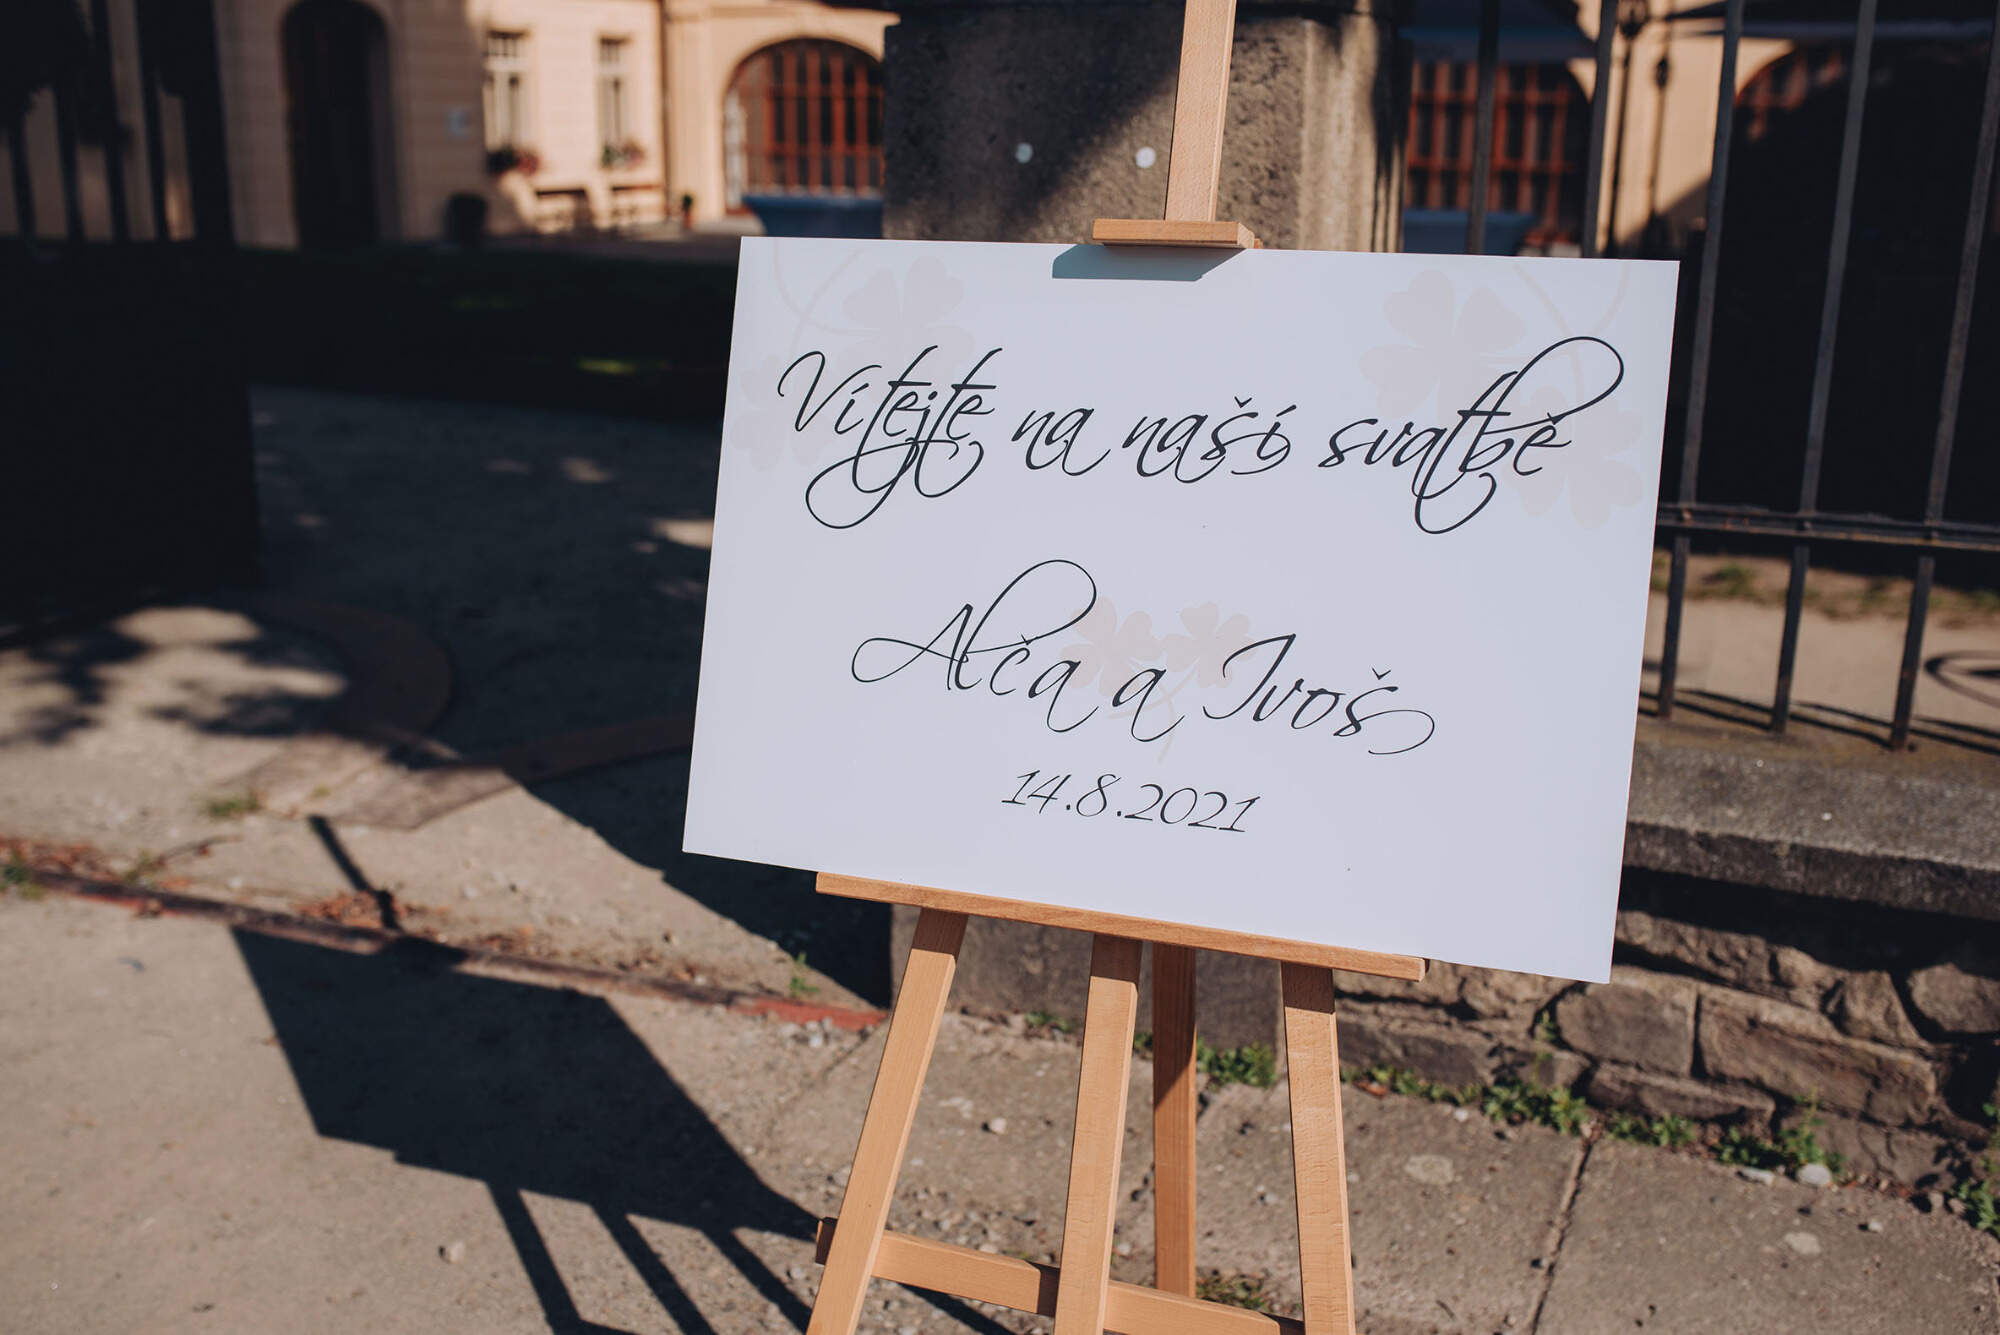 Vítejte na naší svatbě
Alča a Ivoš
14.8.2021